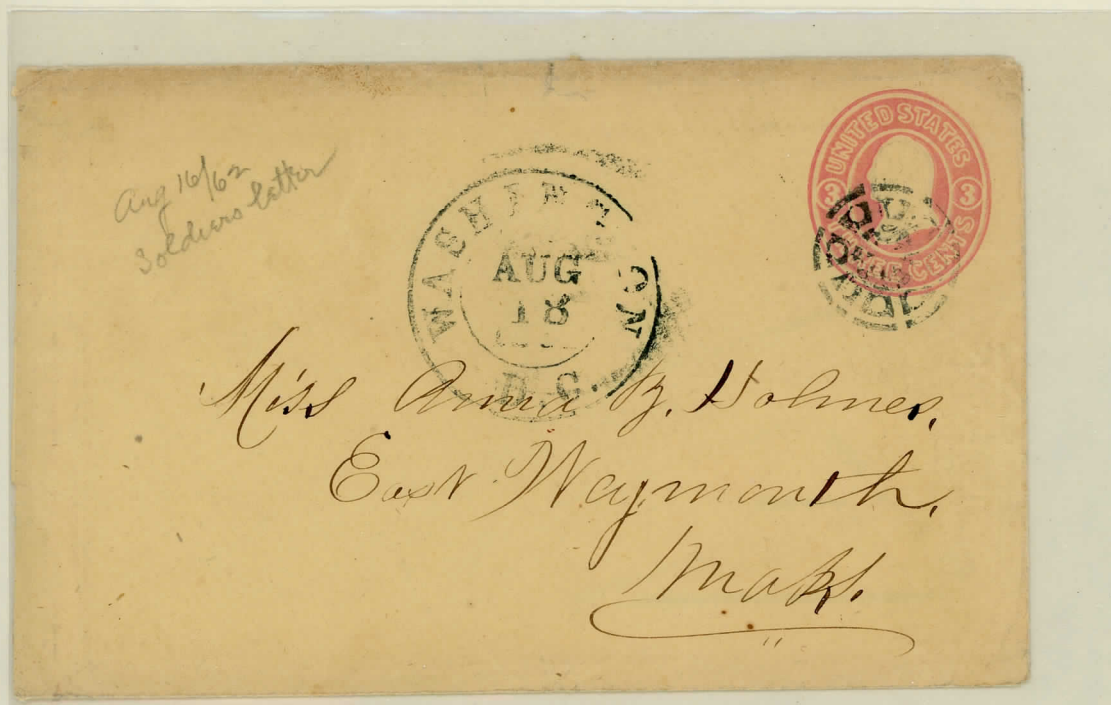 Aug 16/62
Soldiers letter
WASHINGTON
AUG
18
D.C.
UNITED STATES
3 3
THREE CENTS
Miss Anna B. Holmes,
East Weymouth,
Mass.